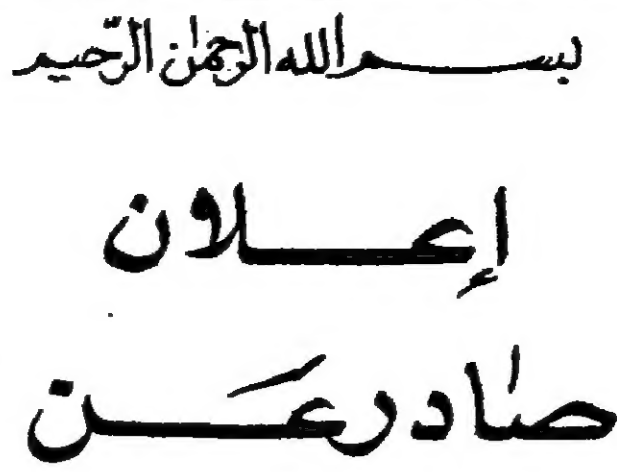 بسم الله الرحمٰن الرّحيم
إعلان
صادر عَن